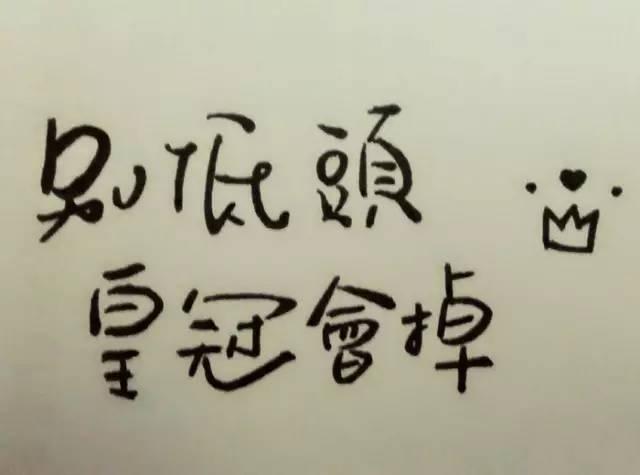 別低頭
皇冠會掉